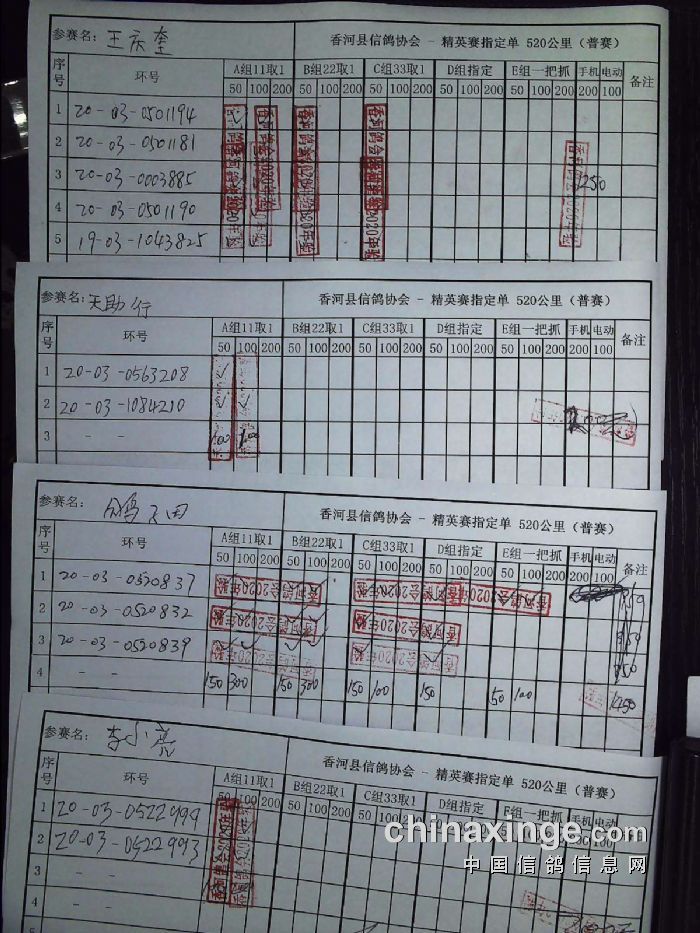 参赛名: 王庆奎 香河县信鸽协会 - 精英赛指定单 520公里（普赛）
序号 环号 A组11取1 B组22取1 C组33取1 D组指定 E组一把抓 手机 电动 备注
50 100 200 50 100 200 50 100 200 50 100 200 50 100 200 200 100
1 20-03-0501194
2 20-03-0501181
3 20-03-0003885 1250
4 20-03-0501190
5 19-03-1043825
参赛名: 天助行 香河县信鸽协会 - 精英赛指定单 520公里（普赛）
序号 环号 A组11取1 B组22取1 C组33取1 D组指定 E组一把抓 手机 电动 备注
50 100 200 50 100 200 50 100 200 50 100 200 50 100 200 200 100
1 20-03-0563208
2 20-03-1084210
3 - - 100 100
参赛名: 香河县信鸽协会 - 精英赛指定单 520公里（普赛）
序号 环号 A组11取1 B组22取1 C组33取1 D组指定 E组一把抓 手机 电动 备注
50 100 200 50 100 200 50 100 200 50 100 200 50 100 200 200 100
1 20-03-0520837
2 20-03-0520832
3 20-03-0520839
4 - - 150 300 150 300 150 100 150 50 100 1450
参赛名: 李小亮 香河县信鸽协会 - 精英赛指定单 520公里（普赛）
序号 环号 A组11取1 B组22取1 C组33取1 D组指定 E组一把抓 手机 电动 备注
50 100 200 50 100 200 50 100 200 50 100 200
1 20-03-0522999
2 20-03-0522993
3 - -
4 - -
5
chinaxinge.com
中国信鸽信息网